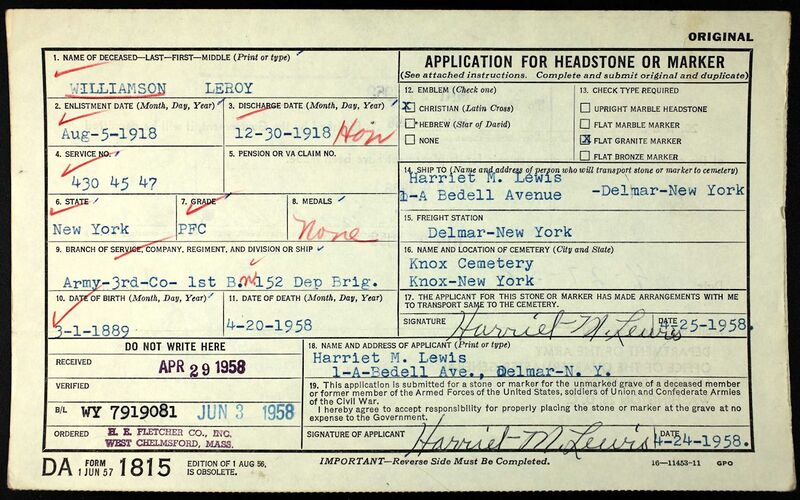 ORIGINAL
1. NAME OF DECEASED—LAST—FIRST—MIDDLE (Print or type)
WILLIAMSON LEROY
2. ENLISTMENT DATE (Month, Day, Year)
Aug-5-1918
3. DISCHARGE DATE (Month, Day, Year)
12-30-1918 Hon
4. SERVICE NO.
430 45 47
5. PENSION OR VA CLAIM NO.
6. STATE
New York
7. GRADE
PFC
8. MEDALS
None
9. BRANCH OF SERVICE, COMPANY, REGIMENT, AND DIVISION OR SHIP
Army-3rd-Co- 1st B.n 152 Dep Brig.
10. DATE OF BIRTH (Month, Day, Year)
3-1-1889
11. DATE OF DEATH (Month, Day, Year)
4-20-1958
APPLICATION FOR HEADSTONE OR MARKER
(See attached instructions. Complete and submit original and duplicate)
12. EMBLEM (Check one)
X CHRISTIAN (Latin Cross)
HEBREW (Star of David)
NONE
13. CHECK TYPE REQUIRED
UPRIGHT MARBLE HEADSTONE
FLAT MARBLE MARKER
X FLAT GRANITE MARKER
FLAT BRONZE MARKER
14. SHIP TO (Name and address of person who will transport stone or marker to cemetery)
Harriet M. Lewis
1-A Bedell Avenue -Delmar-New York
15. FREIGHT STATION
Delmar-New York
16. NAME AND LOCATION OF CEMETERY (City and State)
Knox Cemetery
Knox-New York
17. THE APPLICANT FOR THIS STONE OR MARKER HAS MADE ARRANGEMENTS WITH ME
TO TRANSPORT SAME TO THE CEMETERY.
SIGNATURE Harriet M. Lewis DATE 4-25-1958.
DO NOT WRITE HERE
RECEIVED APR 29 1958
VERIFIED
B/L WY 7919081 JUN 3 1958
ORDERED H. E. FLETCHER CO., INC.
WEST CHELMSFORD, MASS.
18. NAME AND ADDRESS OF APPLICANT (Print or type)
Harriet M. Lewis
1-A-Bedell Ave., Delmar-N. Y.
19. This application is submitted for a stone or marker for the unmarked grave of a deceased member
or former member of the Armed Forces of the United States, soldiers of Union and Confederate Armies
of the Civil War.
I hereby agree to accept responsibility for properly placing the stone or marker at the grave at no
expense to the Government.
SIGNATURE OF APPLICANT Harriet M. Lewis DATE 4-24-1958.
DA FORM 1 JUN 57 1815 EDITION OF 1 AUG 56, IS OBSOLETE.
IMPORTANT—Reverse Side Must Be Completed.
16—11453-11 GPO